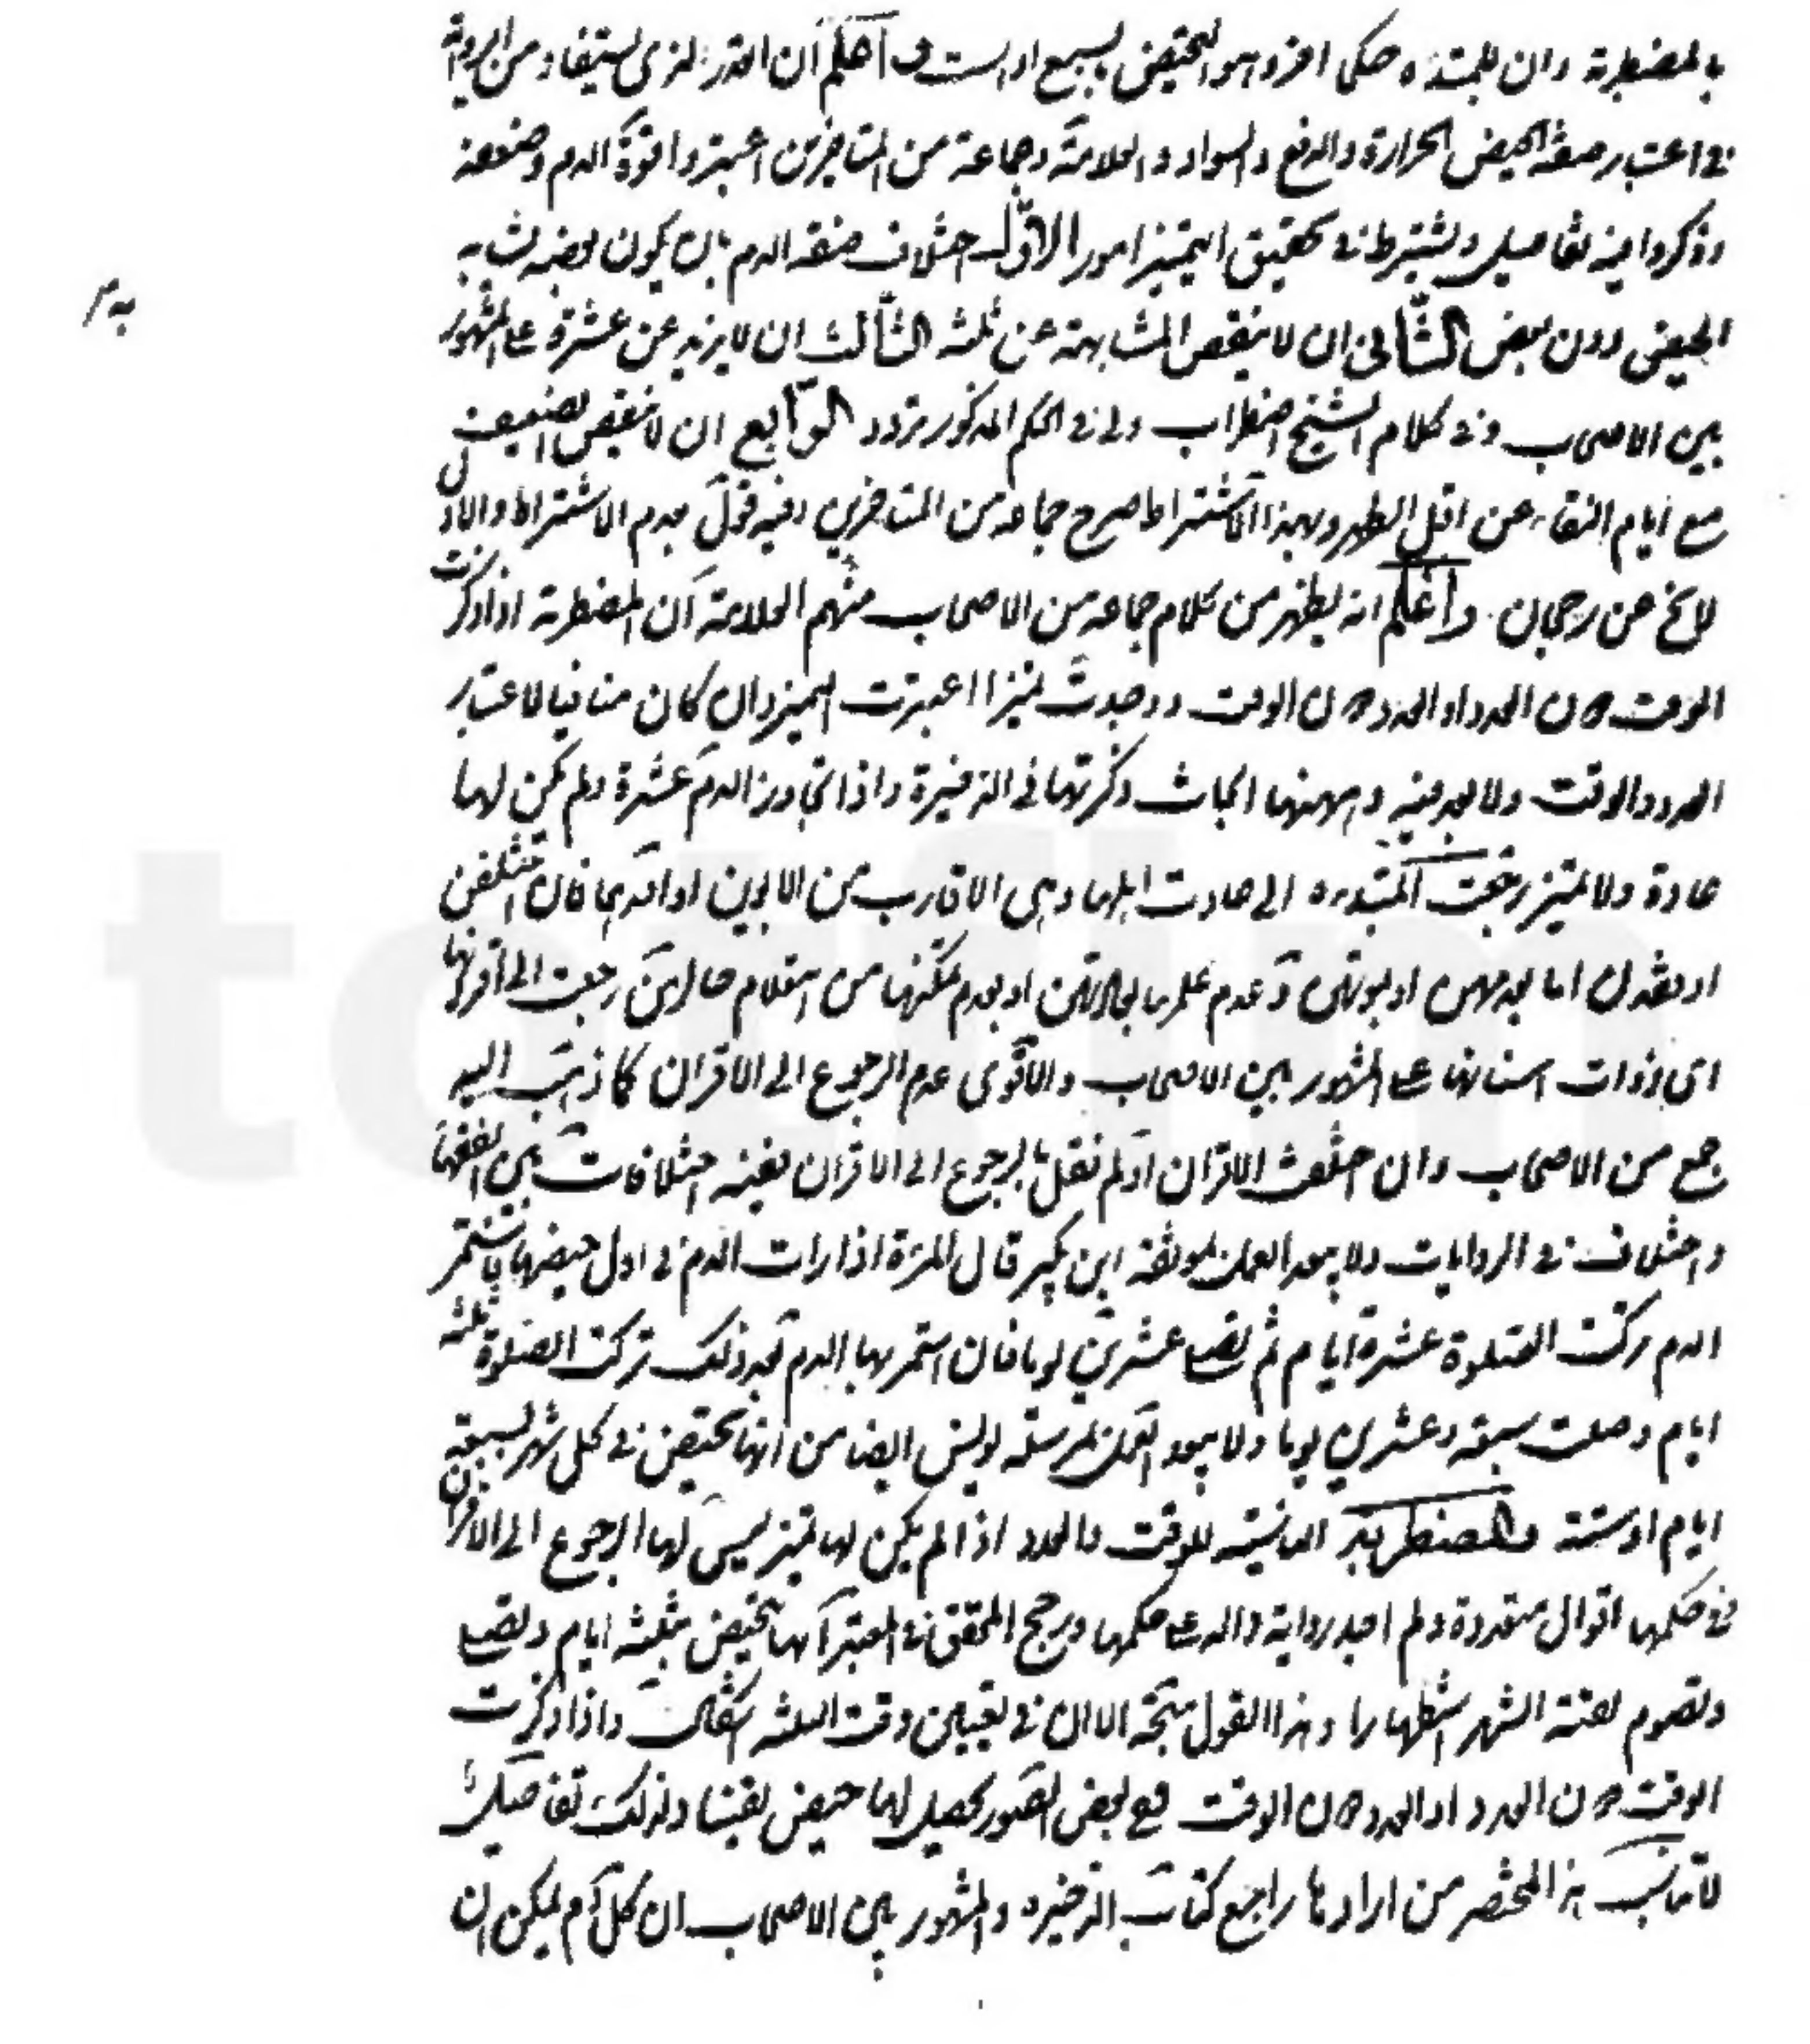 بالمضطربة وان للمبتدءة حكما اخر وهو التحيض بسبع او ست واعلم ان القدر الذى يستفاد من الرواية
فى اعتبار صفة الحيض الحرارة والدفع والسواد والعلامة وجماعة من المتاخرين اعتبروا قوة الدم وضعفه
وذكروا فيه تفاصيل ويشترط فى تحقيق التميز امور الاول اختلاف صفة الدم بان يكون بعضه يشابه
الحيض دون بعض الثانى ان لا ينقص المشابهة عن ثلثة الثالث ان لا يزيد عن عشرة على المشهور
بين الاصحاب وفى كلام الشيخ اضطراب ولى فى الحكم المذكور تردد الرابع ان لا ينقص الضعيف
مع ايام النقاء عن اقل الطهر وبهذا الاشتراط صرح جماعة من المتاخرين وفيه قول بعدم الاشتراط والاول
لا يخ عن رجحان واعلم انه يظهر من كلام جماعة من الاصحاب منهم العلامة ان المضطربة اذا ذكرت
الوقت دون العدد او العدد دون الوقت ووجدت تميزا اعتبرت التميز وان كان منافيا لاعتبار
العدد والوقت ولا بعد فيه وههنا ابحاث ذكرتها فى الذخيرة واذا تجاوز الدم عشرة ولم يكن لها
عادة ولا تميز رجعت المبتدءة الى عادت اهلها وهى الاقارب من الابوين او احدهما فان اختلفن
او فقدن اما بعدمهن او بموتهن وعدم علمها بعادتهن او بعدم تمكنها من استعلام حالهن رجعت الى اقرانها
اى ذوات اسنانها على المشهور بين الاصحاب والاقوى عدم الرجوع الى الاقران كما ذهب اليه
جمع من الاصحاب وان اختلفت الاقران او لم نقل بالرجوع الى الاقران ففيه اختلافات بين الفقهاء
واختلاف فى الروايات ولا يبعد العمل بموثقة ابن بكير قال المرءة اذا رات الدم فى اول حيضها فاستمر
الدم تركت الصلوة عشرة ايام ثم تصلى عشرين يوما فان استمر بها الدم بعد ذلك تركت الصلوة ثلثة
ايام وصلت سبعة وعشرين يوما ولا يبعد العمل بمرسلة يونس ايضا من انها تحيض فى كل شهر بسبعة
ايام او ستة والمضطربة الناسية للوقت والعدد اذا لم يكن لها تميز ليس لها الرجوع الى الاقران
فى حكمها اقوال متعددة ولم اجد رواية دالة على حكمها ورجح المحقق فى المعتبر انها تحيض بثلثة ايام وتصلى
وتصوم بقية الشهر استظهارا وهذا القول متجه الا ان فى تعيين وقت الثلثة اشكال واذا ذكرت
الوقت دون العدد او العدد دون الوقت فع بعض الصور يحصل لها حيض يقينا ولذلك تفاصيل
لا تناسب هذا المختصر من ارادها راجع كتاب الذخيرة والمشهور بين الاصحاب ان كل دم يمكن ان